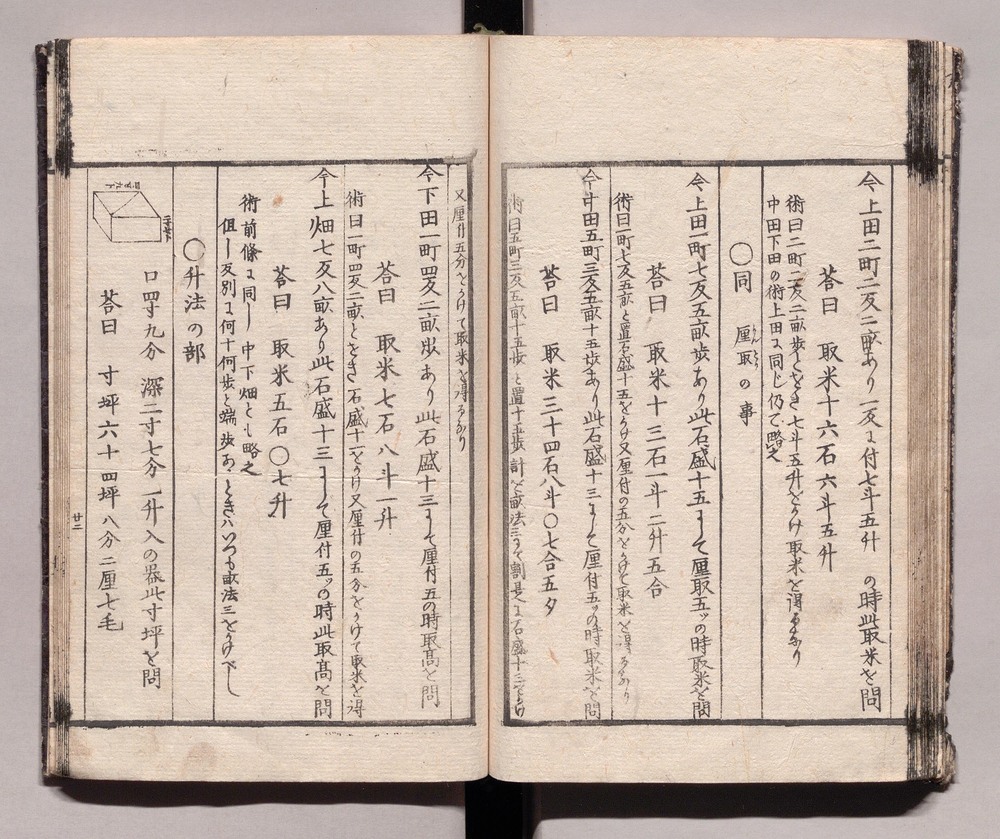 今上田二町二反二畝あり一反ニ付七斗五升の時此取米を問
荅曰 取米十六石六斗五升
術曰二町二反二畝歩をおき七斗五升をかけ取米を得るなり
中田下田の術上田ニ同じ仍て略之
〇同 厘取の事
今上田一町七反五畝歩あり此石盛十五にして厘取五ッの時取米を問
荅曰 取米十三石一斗二升五合
術曰一町七反五畝と置石盛十五をかけ又厘付の五分をかけて取米を得るなり
今中田五町三反五畝十五歩あり此石盛十三にして厘付五ッの時取米を問
荅曰 取米三十四石八斗〇七合五夕
術曰五町三反五畝十五歩と置十五歩計を畝法三にて割是に石盛十三をかけ
又厘付五分をかけて取米を得るなり
今下田一町四反二畝歩あり此石盛十一にして厘付五の時取髙を問
荅曰 取米七石八斗一升
術曰一町四反二畝とをき石盛十一をかけ又厘付の五分をかけて取米を得
今上畑七反八畝あり此石盛十三にして厘付五ッの時此取髙を問
荅曰 取米五石〇七升
術前條ニ同し中下畑とも略之
但し反別ニ何十何歩と端歩あるときハいつも畝法三をかけべし
〇升法の部
口四寸九分 深二寸七分 一升入の器此寸坪を問
荅曰 寸坪六十四坪八分二厘七毛
廿三